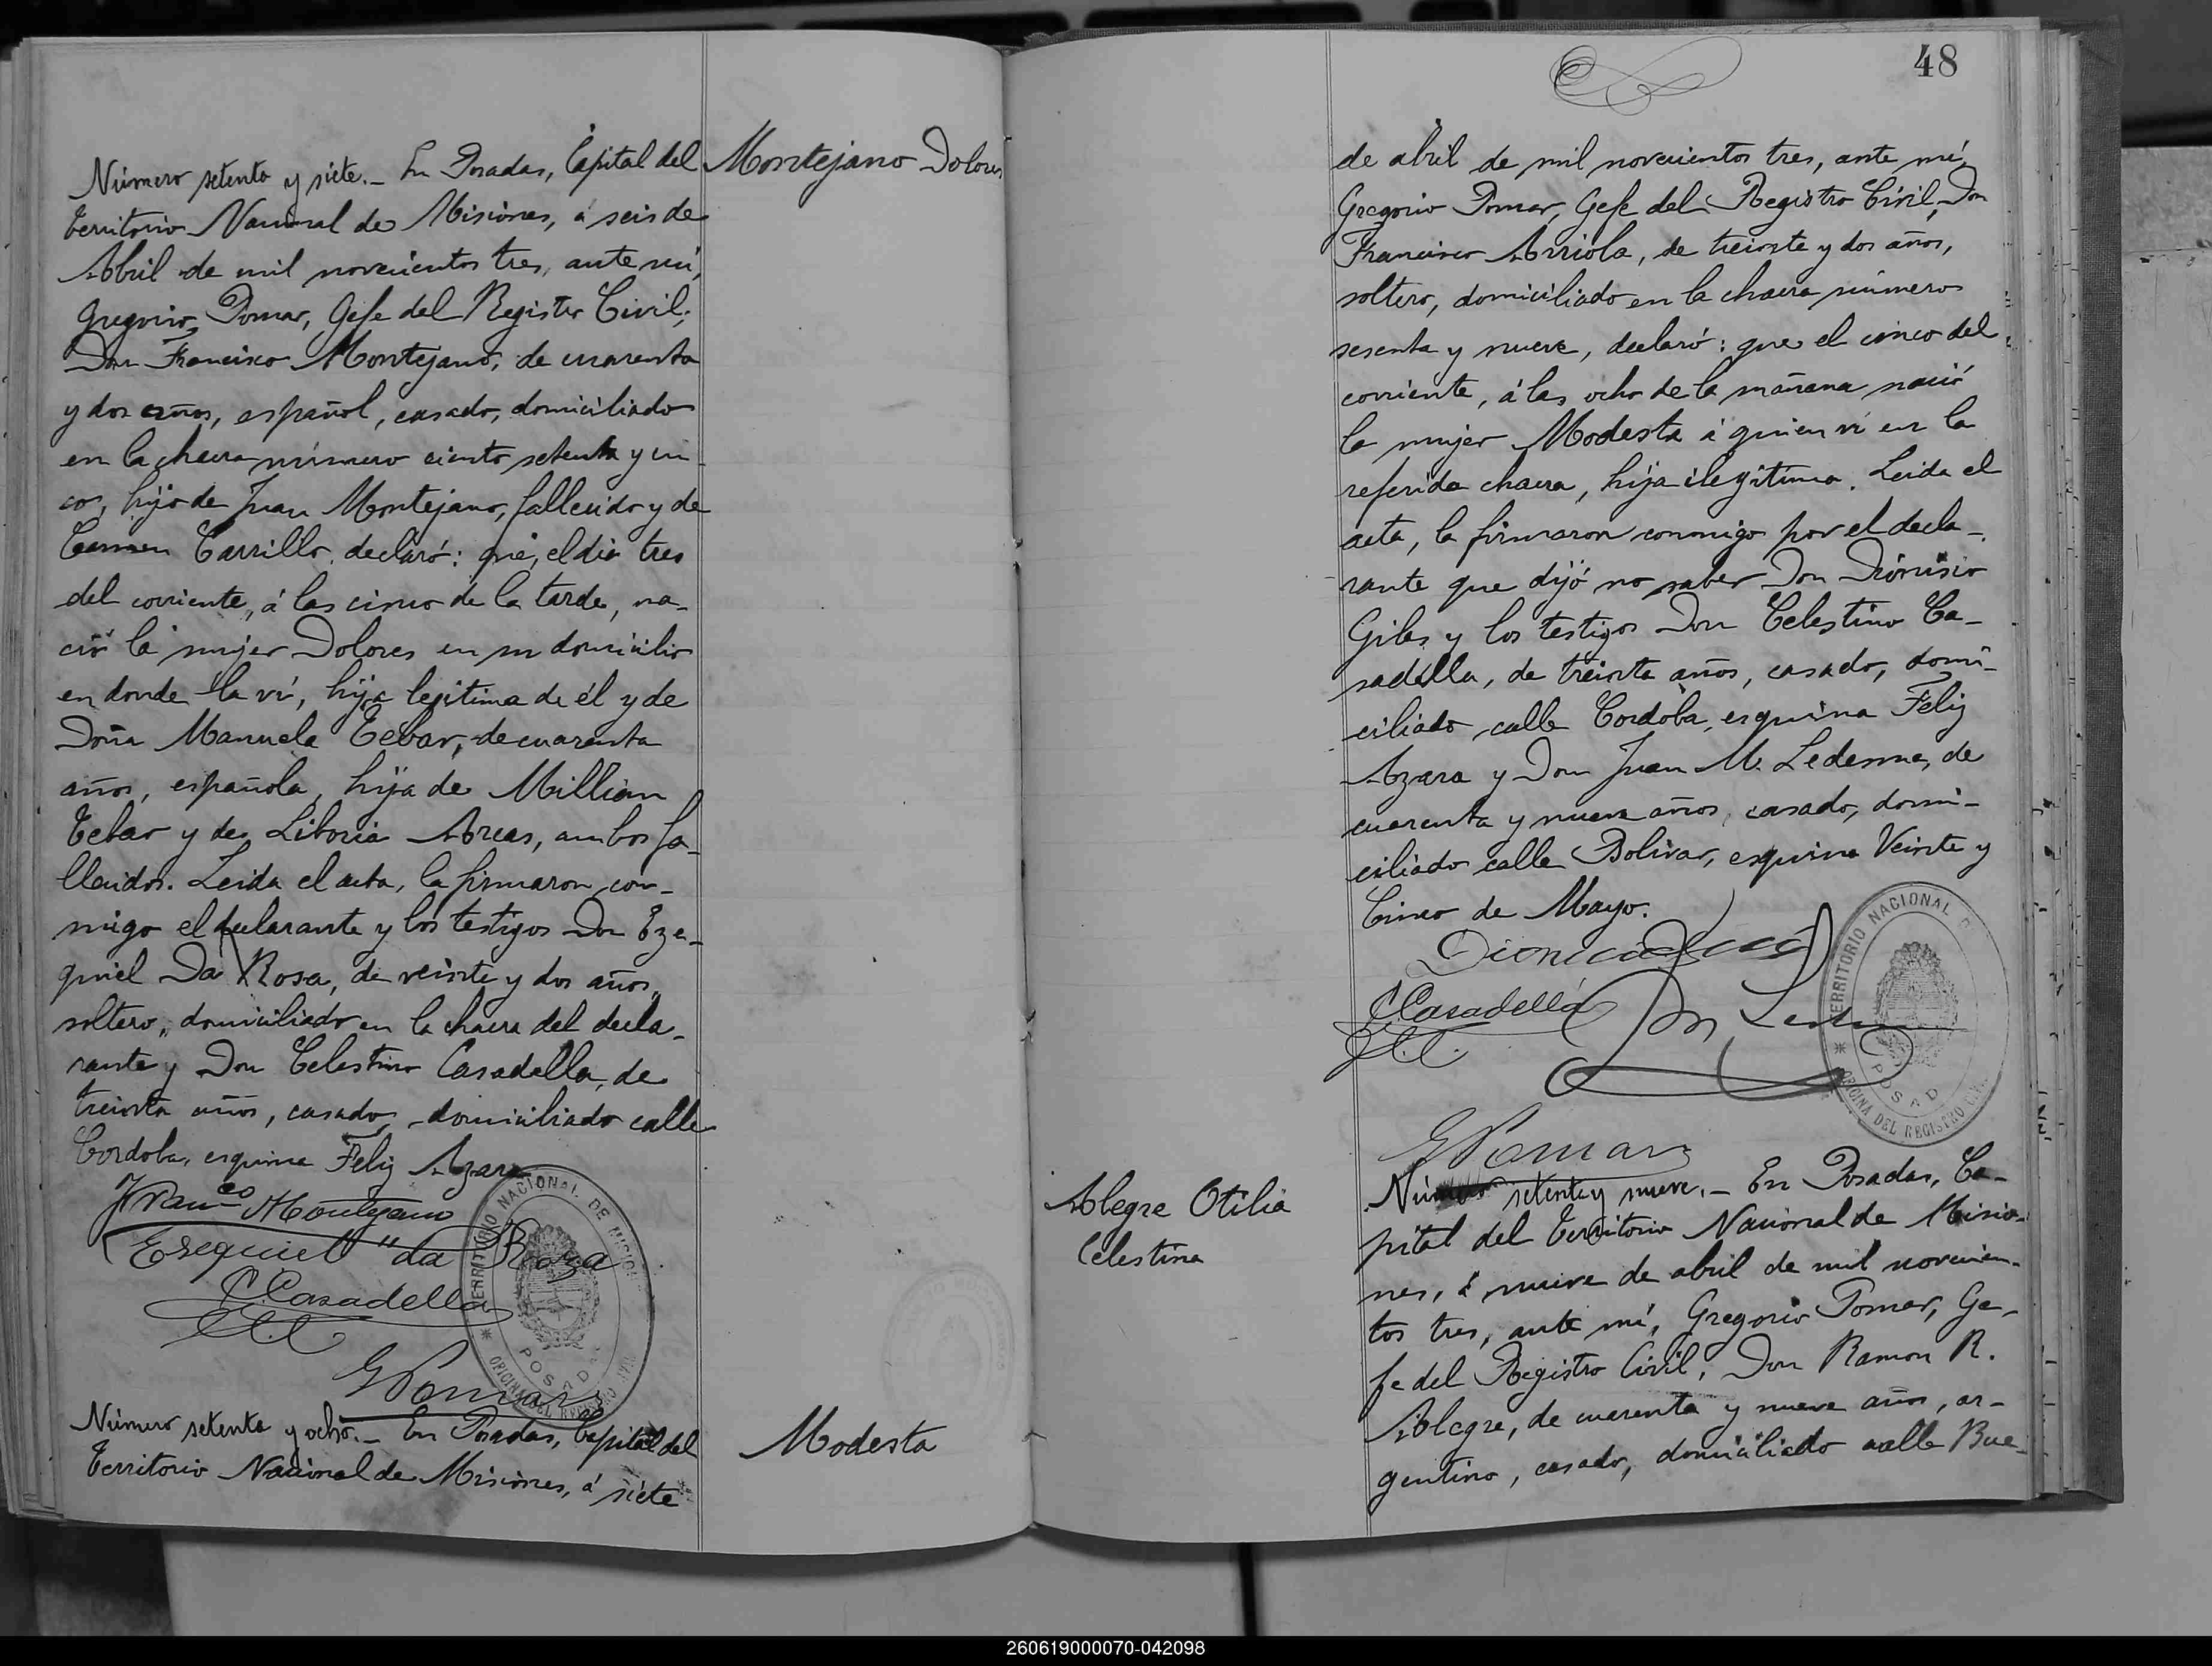 Montejano Dolores
Número setenta y siete.- En Posadas, Capital del
Territorio Nacional de Misiones, á seis de
Abril de mil novecientos tres, ante mí,
Gregorio Pomar, Gefe del Registro Civil;
Don Francisco Montejano, de cuarenta
y dos años, español, casado, domiciliado
en la chacra número ciento setenta y cin
co, hijo de Juan Montejano, fallecido y de
Carmen Carrillo, declaró: que, el dia tres
del corriente, á las cinco de la tarde, na-
ció la mujer Dolores en su domicilio
en donde la ví, hija legitima de él y de
Doña Manuela Tebar, de cuarenta
años, española, hija de Millian
Tebar y de Liboria Arcas, ambos fa-
llecidos. Leida el acta, la firmaron con-
migo el declarante y los testigos Don Eze-
quiel Da Rosa, de veinte y dos años,
soltero, domiciliado en la chacra del decla-
rante y Don Celestino Casadella, de
treinta años, casado, domiciliado calle
Cordoba, esquina Feliz Azara
Franco Montejano
Esequiel "da Roza
C. Casadella
G Pomar
TERRITORIO NACIONAL DE MISIONES
POSADAS
OFICINA DEL REGISTRO CIVIL
Modesta
Número setenta y ocho.- En Posadas, Capital del
Territorio Nacional de Misiones, á siete
48
de abril de mil novecientos tres, ante mí,
Gregorio Pomar, Gefe del Registro Civil, Don
Francisco Arriola, de treinte y dos años,
soltero, domiciliado en la chacra número
sesenta y nueve, declaró: que el cinco del
corriente, á las ocho de la mañana nació
la mujer Modesta á quien ví en la
referida chacra, hija ilegitima. Leida el
acta, la firmaron conmigo por el decla-
rante que dijó no saber Don Dionisio
Giles y los testigos Don Celestino Ca-
sadella, de treinta años, casado, domi-
ciliado calle Cordoba, esquina Feliz
Azara y Don Juan M. Ledesma, de
cuarenta y nueve años, casado, domi-
ciliado calle Bolivar, esquina Veinte y
Cinco de Mayo.
C Casadella
G Pomar
TERRITORIO NACIONAL D
POSAD
OFICINA DEL REGISTRO CIVIL
Alegre Otilia
Celestina
Número setenta y nueve.- En Posadas, Ca-
pital del Territorio Nacional de Misio-
nes, á nueve de abril de mil novecien-
tos tres, ante mí, Gregorio Pomar, Ge-
fe del Registro Civil, Don Ramon R.
Alegre, de cuarenta y nueve años, ar-
gentino, casado, domiciliado calle Bue-
260619000070-042098